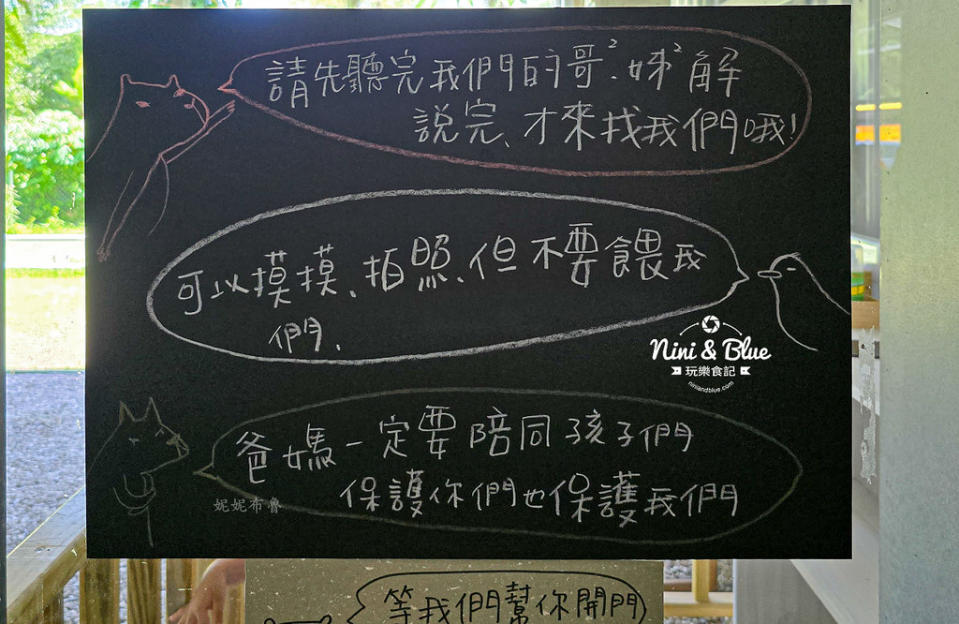 請先聽完我們的哥²、姊²解
說完、才來找我們哦!
可以摸摸、拍照、但不要餵我
們.
Nini & Blue
玩樂食記
niniandblue.com
爸媽一定要陪同孩子們
保護你們也保護我們
妮妮布魯
等我們幫你開門